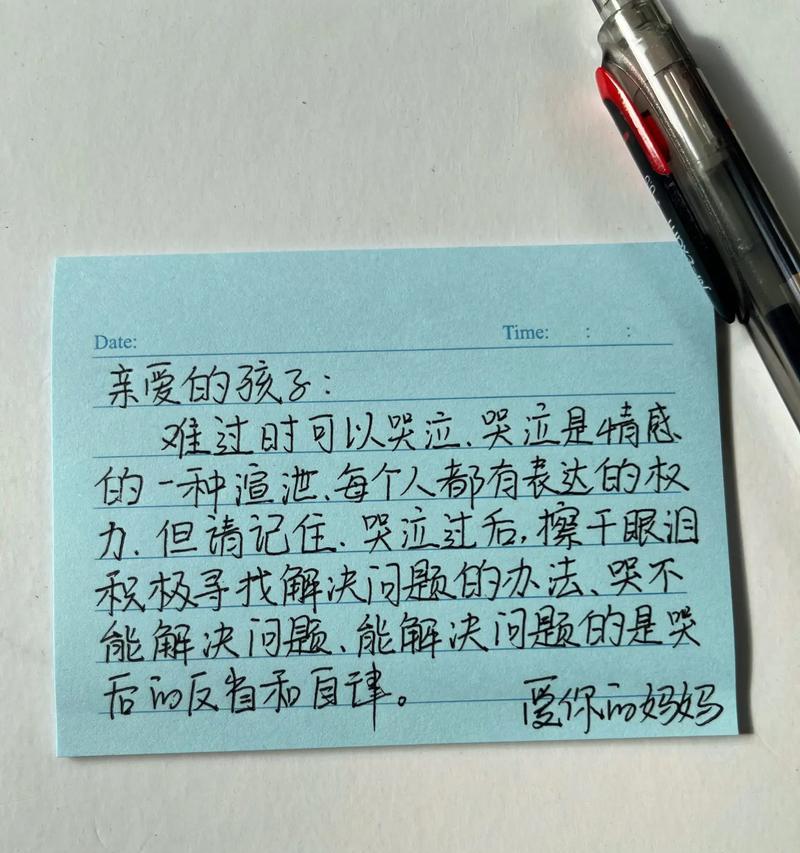 Date:
Time: : :
亲爱的孩子:
难过时可以哭泣、哭泣是情感
的一种渲泄、每个人都有表达的权
力、但请记住、哭泣过后,擦干眼泪
积极寻找解决问题的办法、哭不
能解决问题、能解决问题的是哭
后的反省和自律。
爱你的妈妈